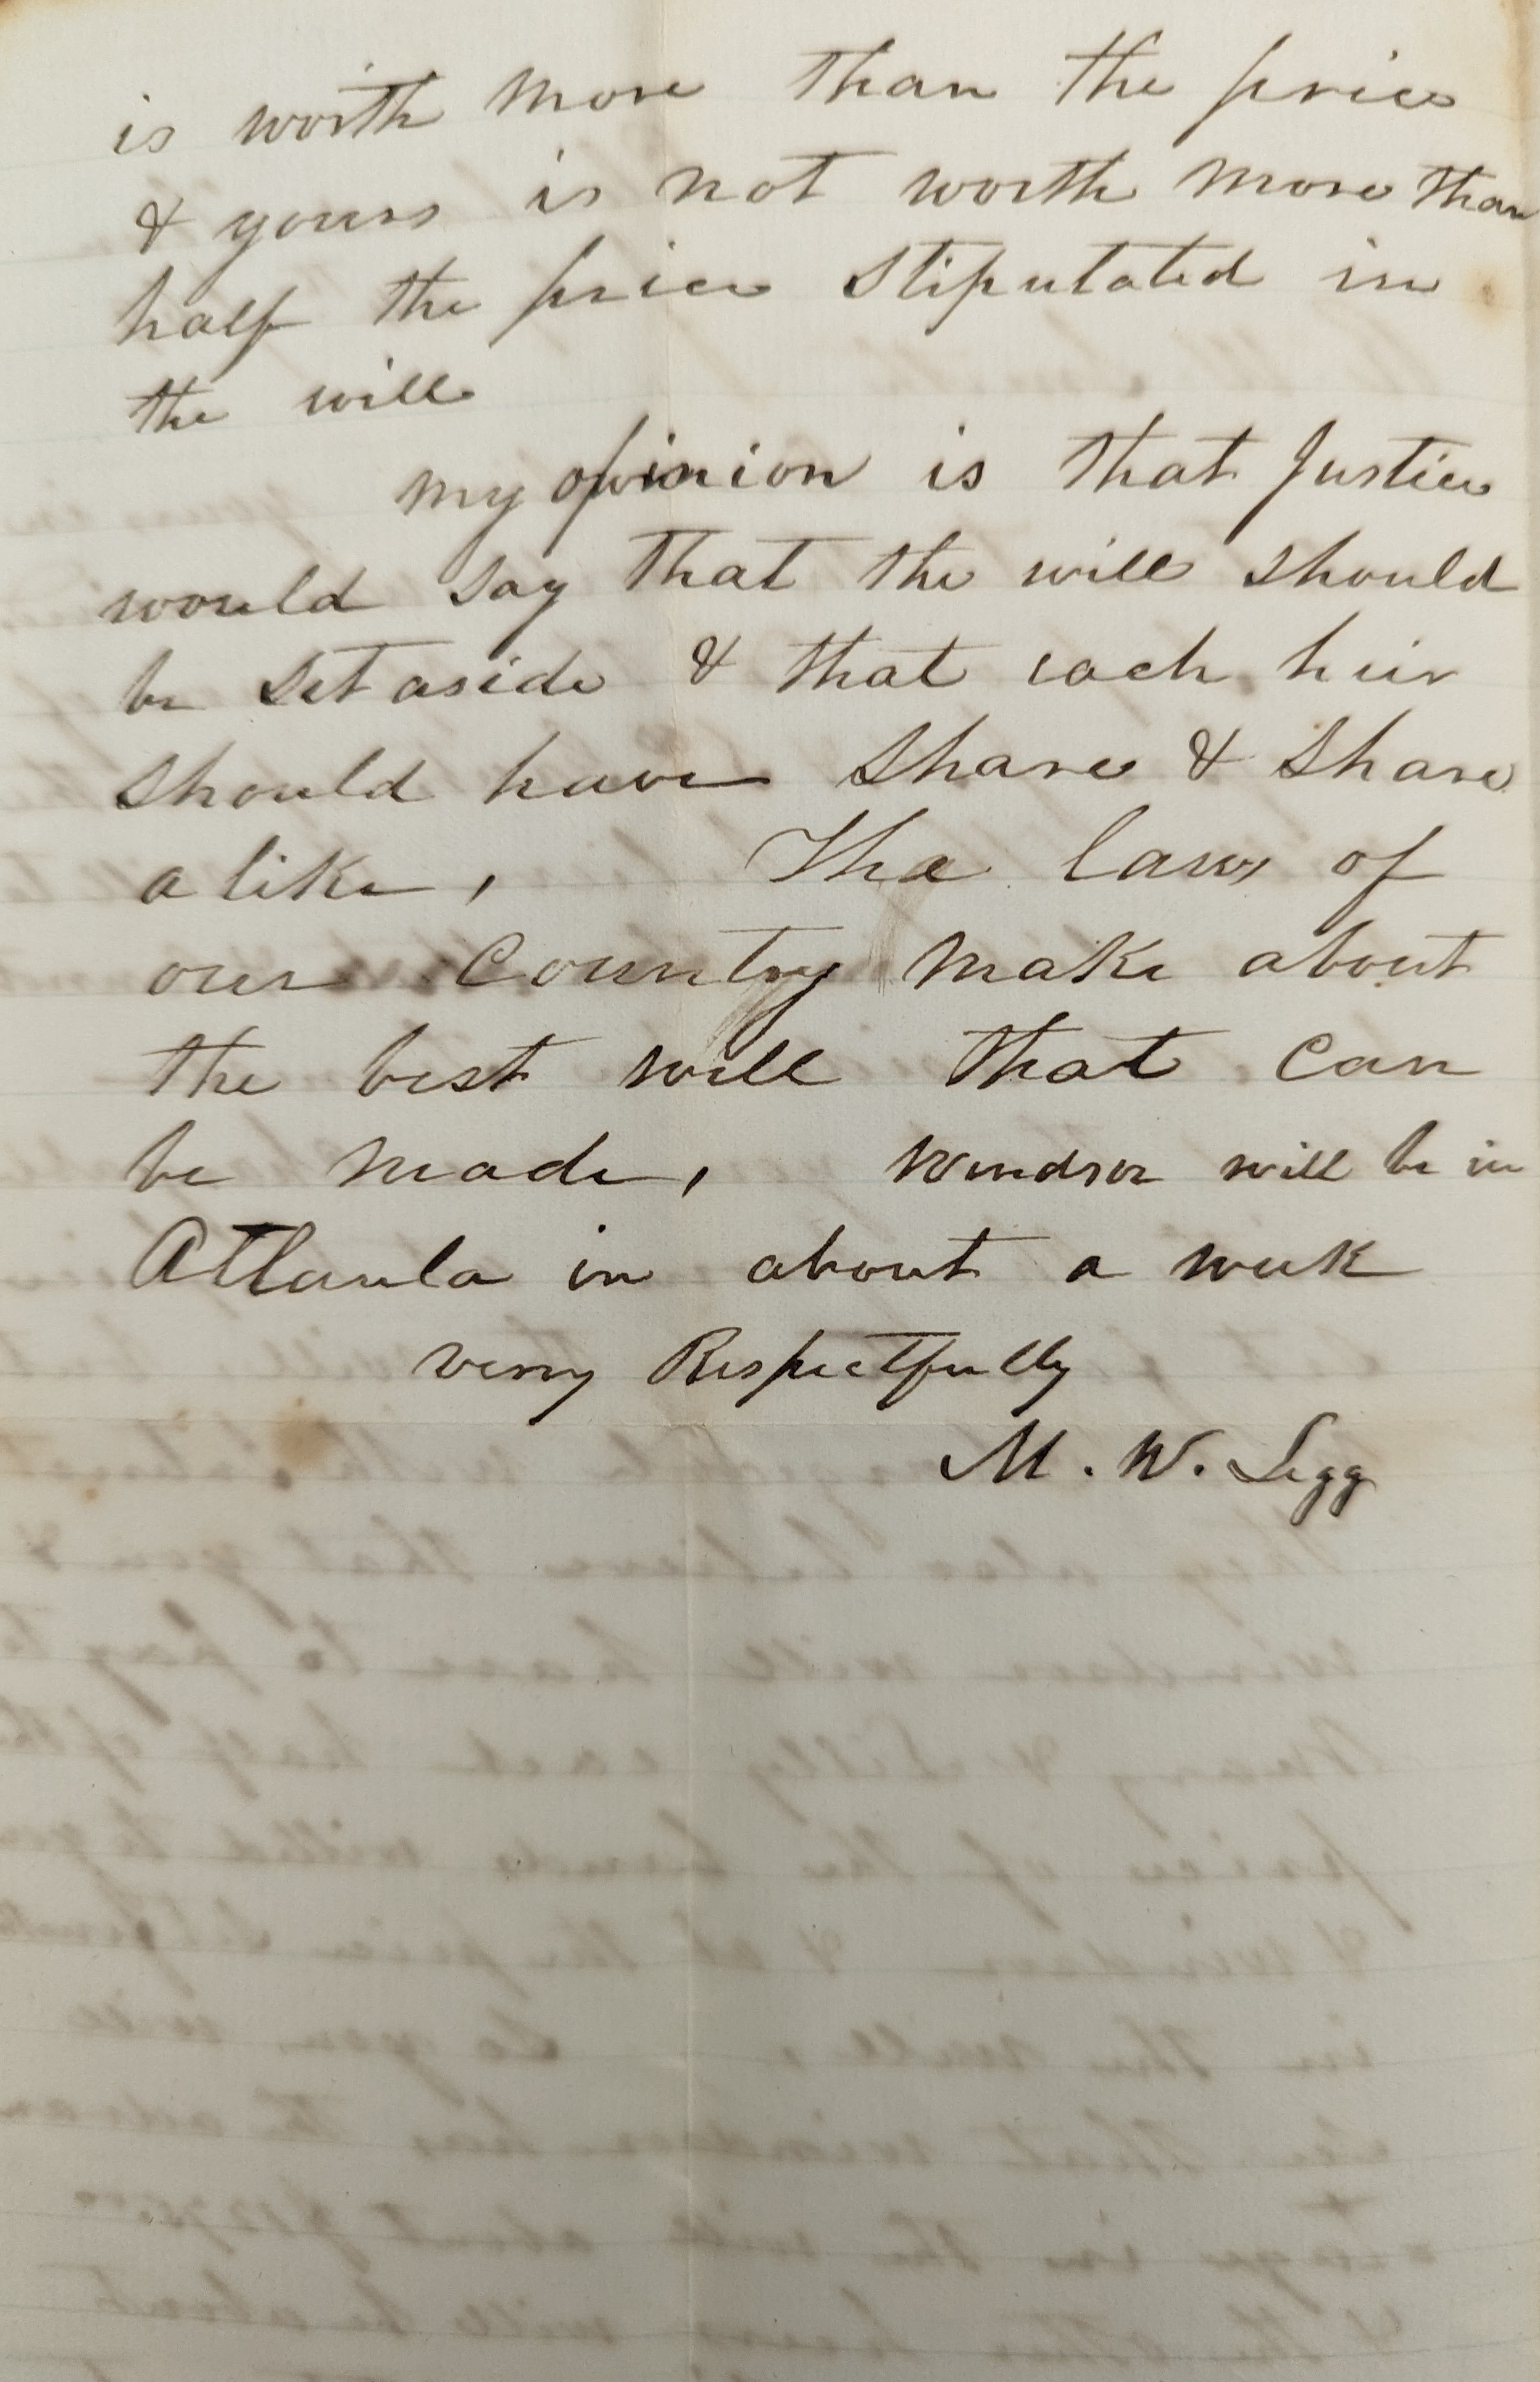 is worth more than the price
& yours is not worth more than
half the price stipulated in
the will
my opinion is that Justice
would say that the will should
be set aside & that each heir
should have share & share
alike,     The laws of
our County make about
the best will that can
be made,     Windsor will be in
Atlanta in about a week
very Respectfully
M. W. Legg